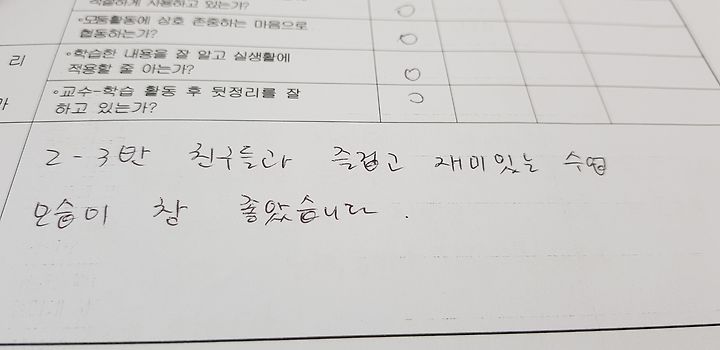 적절하게 사용하고 있는가?
◦모둠활동에 상호 존중하는 마음으로
협동하는가?
◦학습한 내용을 잘 알고 실생활에
적용할 줄 아는가?
리
◦교수-학습 활동 후 뒷정리를 잘
하고 있는가?
가
2-3반 친구들과 즐겁고 재미있는 수업
모습이 참 좋았습니다.